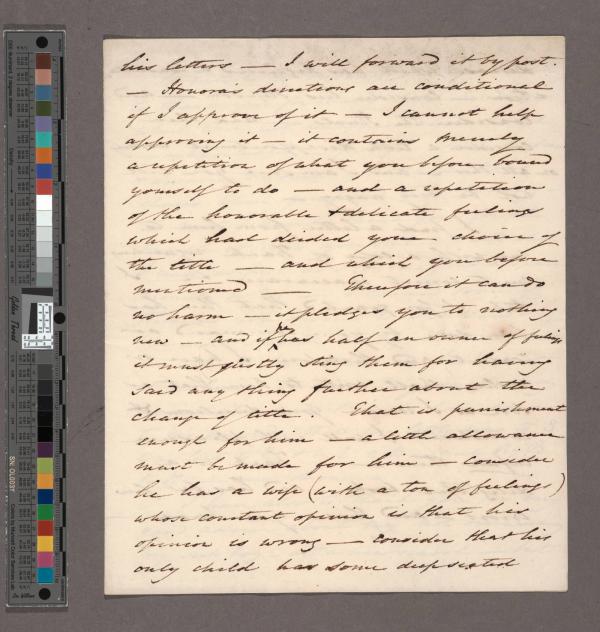 his letters — I will forward it by post.
— Honora's directions are conditional
if I approve of it — I cannot help
approving it — it contains merely
a repetition of what you before bound
yourself to do — and a repetition
of the honorable & delicate feelings
which had decided your choice of
the title — and which you before
mentioned — Therefore it can do
no harm — it pledges you to nothing
new — and if he has half an ounce of feeling
it must justly sting them for having
said any thing further about the
change of title. That is punishment
enough for him — a little allowance
must be made for him — consider
he has a wife (with a ton of feelings)
whose constant opinion is that his
opinion is wrong — consider that his
only child has some deep seated